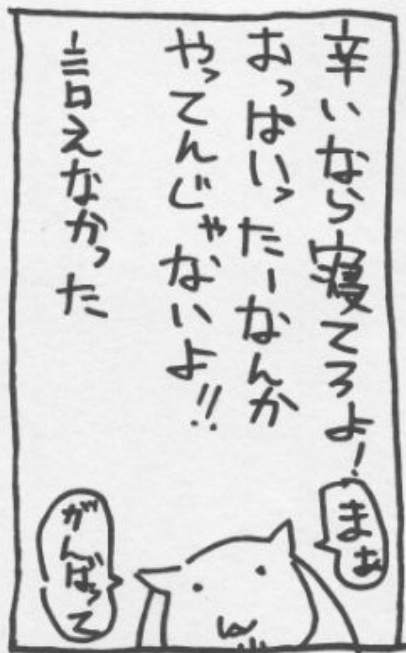 辛いなら寝てろよ!
おっぱいったーなんか
やってんじゃないよ!!
言えなかった
まぁ
がんばって